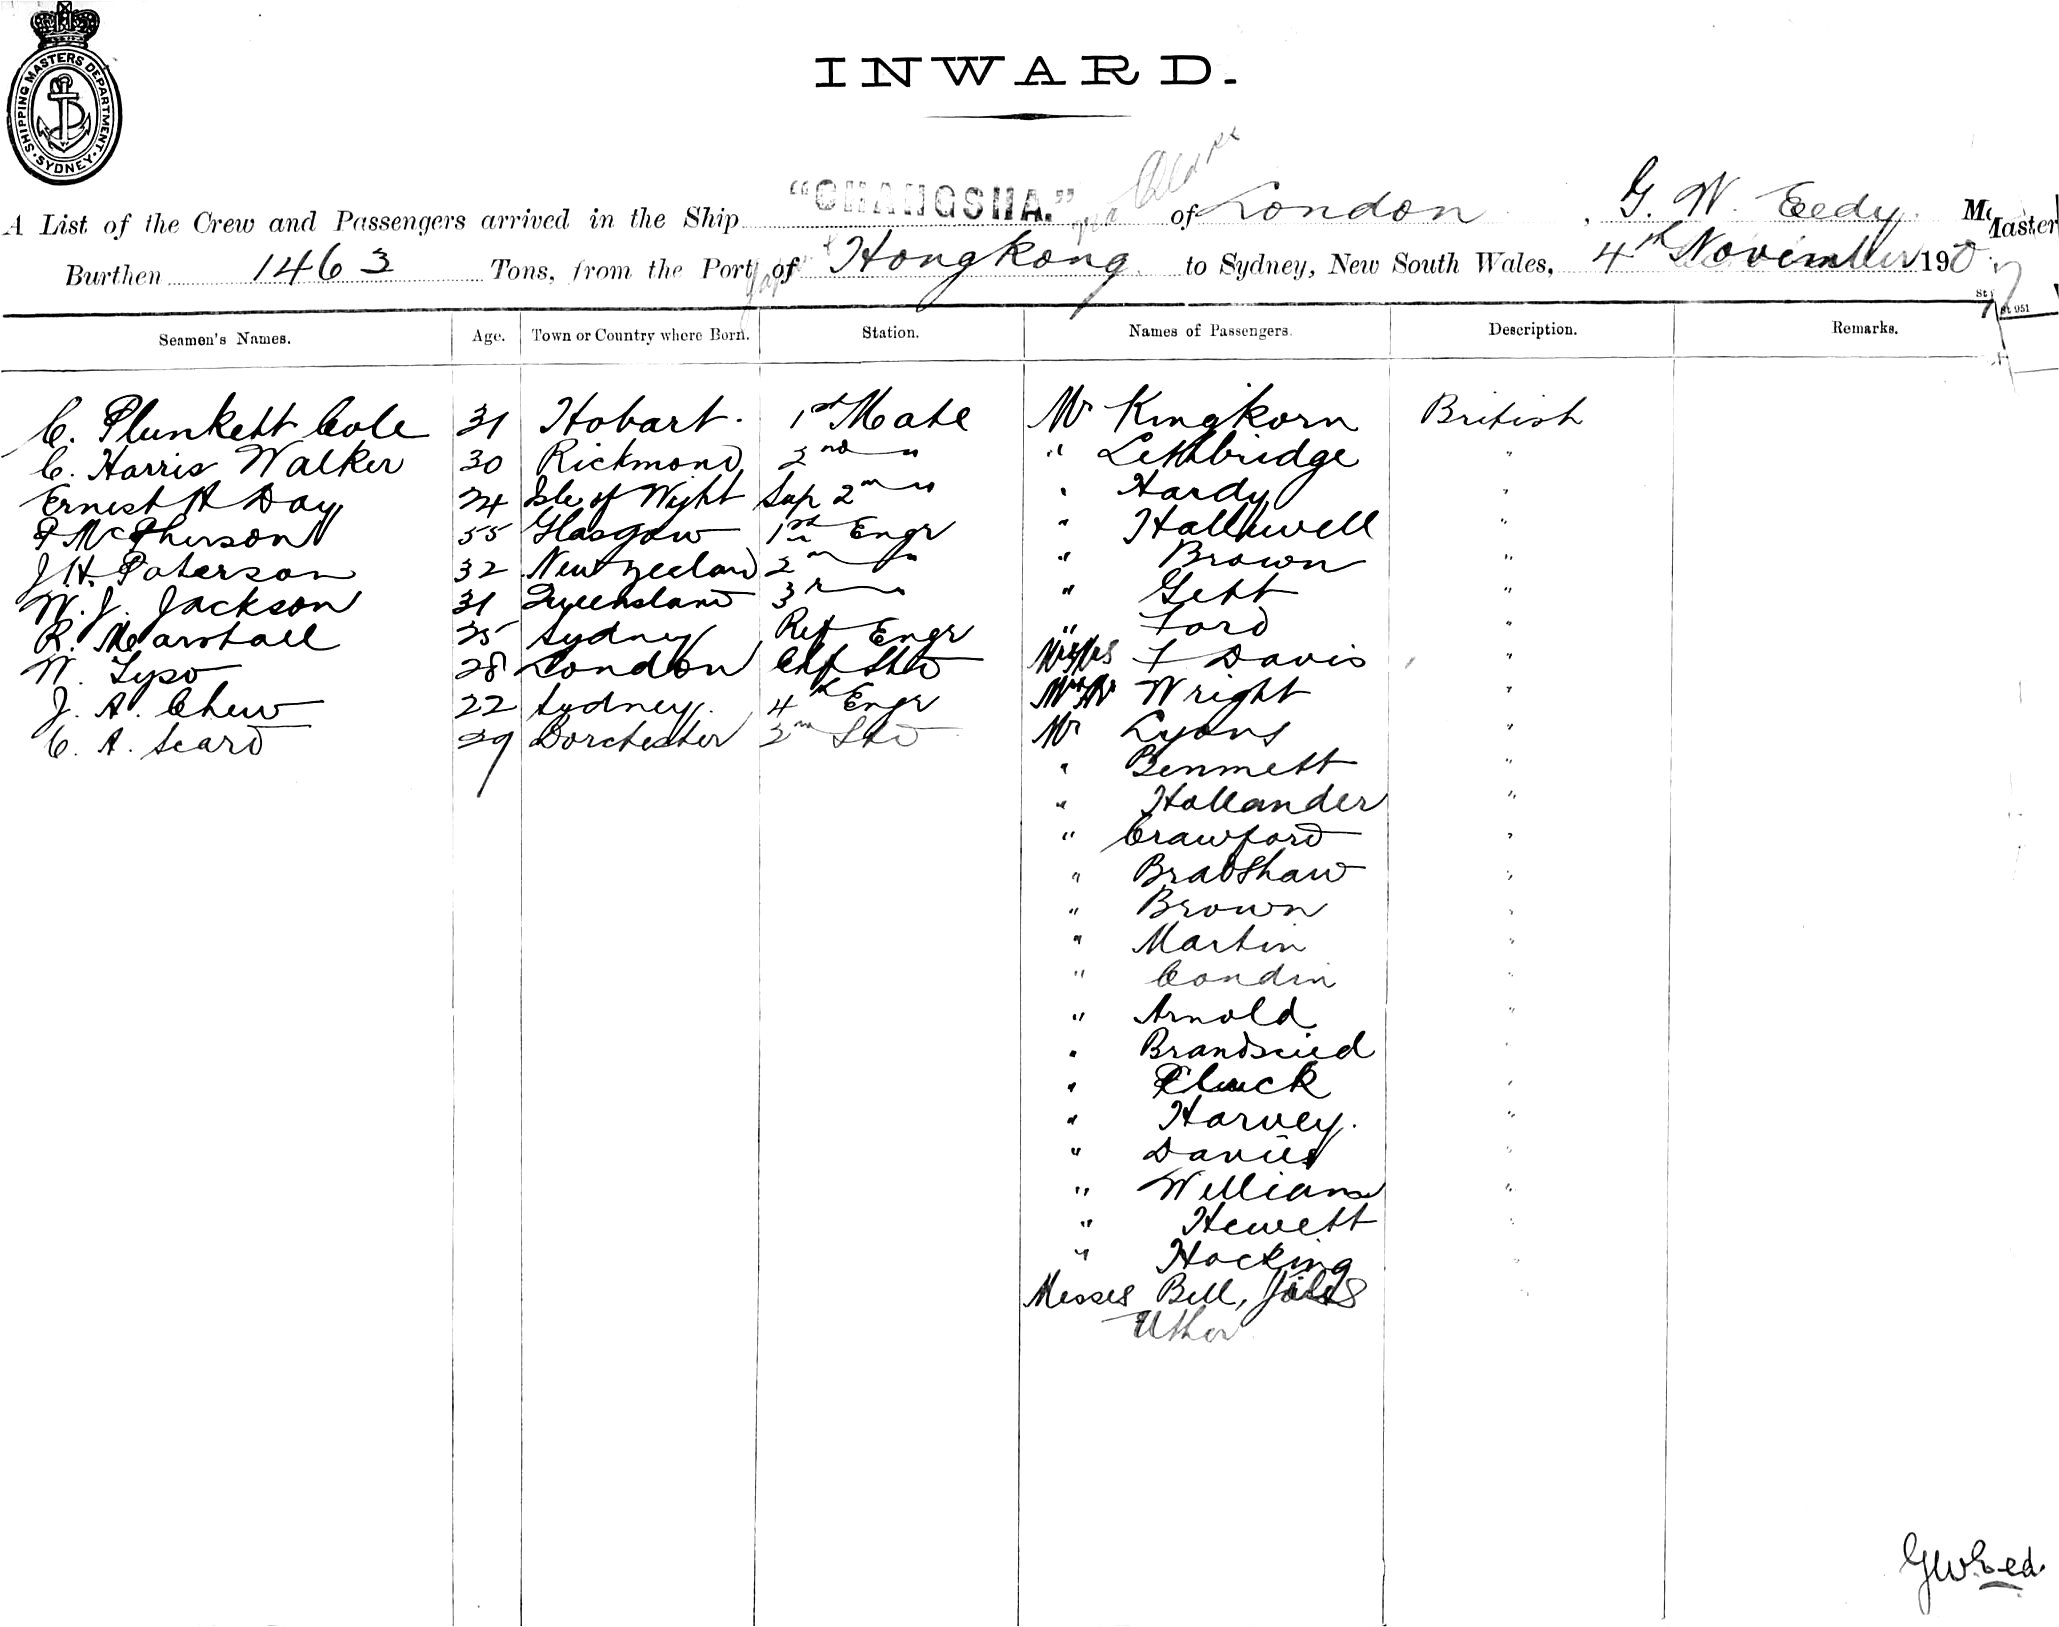 SHIPPING MASTERS DEPARTMENT. SYDNEY
INWARD.
A List of the Crew and Passengers arrived in the Ship "CHANGSHA." of London, G. W. Eedy. Master
Burthen 1463 Tons, from the Port of Hongkong to Sydney, New South Wales, 4th November 190
Seamen's Names. Age. Town or Country where Born. Station. Names of Passengers. Description. Remarks.
C. Plunkett Cole 31 Hobart. 1st Mate Mr Kingkorn British
C. Harris Walker 30 Richmond 2nd " " Lethbridge "
Ernest H Day 24 Isle of Wight Sup 2nd " " Hardy "
P McPherson 55 Glasgow 1st Engr " Halliwell "
J. H. Paterson 32 New Zealand 2nd " " Brown "
W. J. Jackson 31 Queensland 3rd " " Gett "
R. Marshall 25 Sydney Ref Engr " Ford "
W. Tyso 28 London Chf Std F Davis "
J. A. Chew 22 Sydney. 4th Engr Wright "
C. A. Seard 29 Dorchester 2nd Std Mr Lyons "
" Bennett "
" Hollander "
" Crawford "
" Bradshaw "
" Brown "
" Martin "
" Condin "
" Arnold "
" "
" Pluck "
" Harvey. "
" Davies "
" Williams "
" Hewett "
" Hocking "
Messes Bell, "
Uther